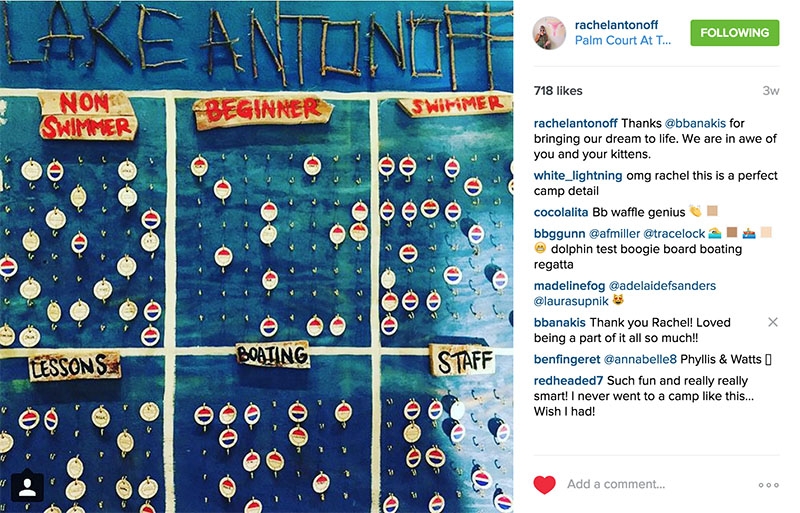 LAKE ANTONOFF
NON
SWIMMER
BEGINNER
SWIMMER
LESSONS
BOATING
STAFF
rachelantonoff
Palm Court At T...
FOLLOWING
718 likes
3w
rachelantonoff Thanks @bbanakis for
bringing our dream to life. We are in awe of
you and your kittens.
white_lightning omg rachel this is a perfect
camp detail
cocolalita Bb waffle genius 👏🏼
bbggunn @afmiller @tracelock
dolphin test boogie board boating
regatta
madelinefog @adelaidefsanders
@laurasupnik
bbanakis Thank you Rachel! Loved
being a part of it all so much!!
benfingeret @annabelle8 Phyllis & Watts
redheaded7 Such fun and really really
smart! I never went to a camp like this...
Wish I had!
Add a comment...